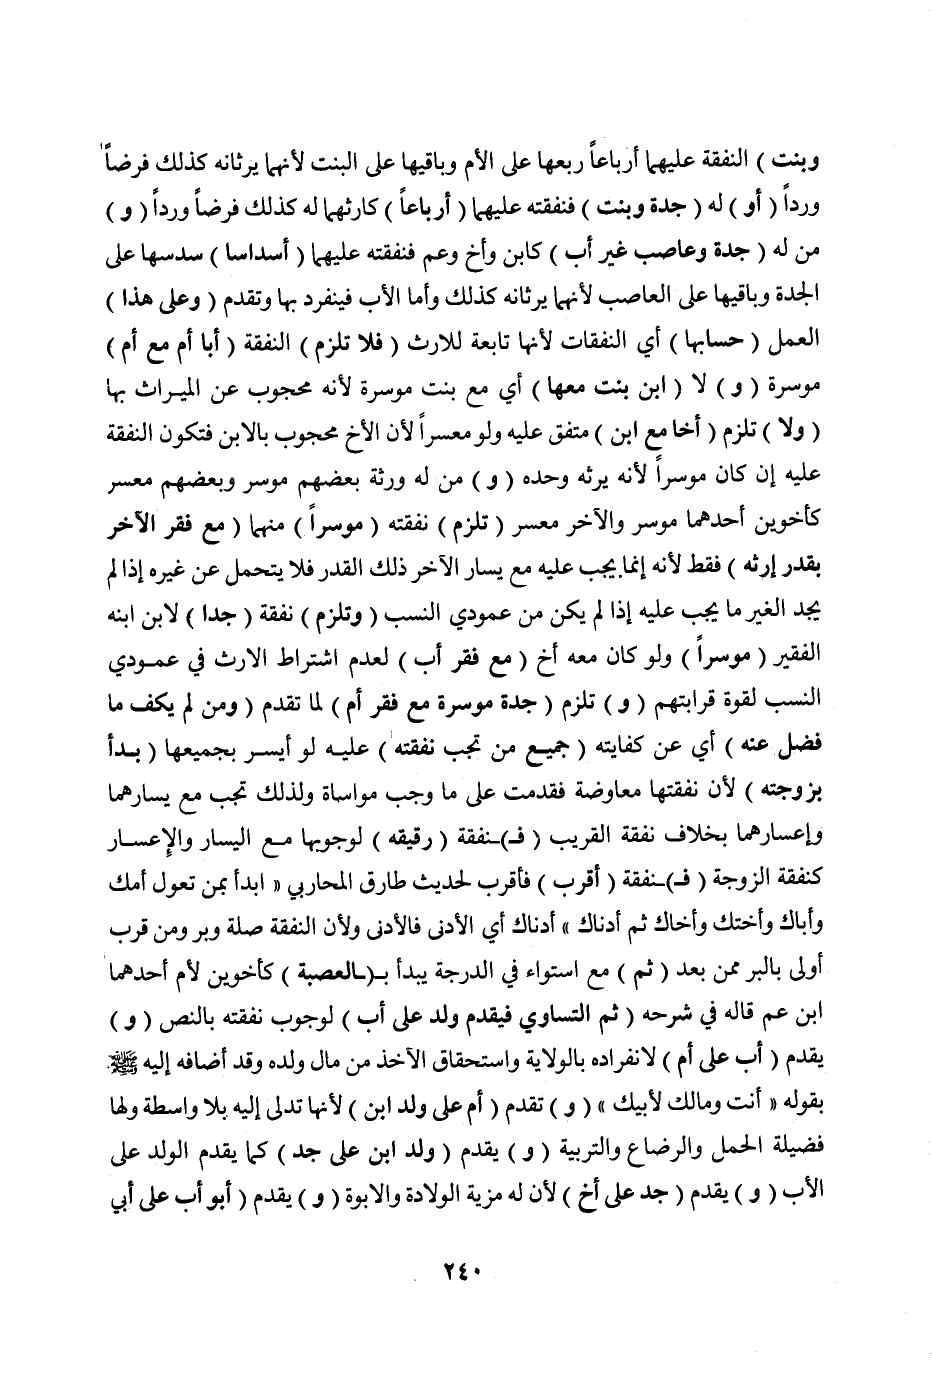 وبنت ) النفقة عليهما أرباعاً ربعها على الأم وباقيها على البنت لأنهما يرثانه كذلك فرضاً
ورداً ( أو ) له ( جدة وبنت ) فنفقته عليهما ( أرباعاً ) كارثهما له كذلك فرضاً ورداً ( و )
من له ( جدة وعاصب غير أب ) كابن وأخ وعم فنفقته عليهما ( أسداسا ) سدسها على
الجدة وباقيها على العاصب لأنهما يرثانه كذلك وأما الأب فينفرد بها وتقدم ( وعلى هذا )
العمل ( حسابها ) أي النفقات لأنها تابعة للارث ( فلا تلزم ) النفقة ( أبا أم مع أم )
موسرة ( و ) لا ( ابن بنت معها ) أي مع بنت موسرة لأنه محجوب عن الميراث بها
( ولا ) تلزم ( أخا مع ابن ) متفق عليه ولو معسراً لأن الأخ محجوب بالابن فتكون النفقة
عليه إن كان موسراً لأنه يرثه وحده ( و ) من له ورثة بعضهم موسر وبعضهم معسر
كأخوين أحدهما موسر والآخر معسر ( تلزم ) نفقته ( موسراً ) منهما ( مع فقر الآخر
بقدر إرثه ) فقط لأنه إنما يجب عليه مع يسار الآخر ذلك القدر فلا يتحمل عن غيره إذا لم
يجد الغير ما يجب عليه إذا لم يكن من عمودي النسب ( وتلزم ) نفقة ( جدا ) لابن ابنه
الفقير ( موسراً ) ولو كان معه أخ ( مع فقر أب ) لعدم اشتراط الارث في عمودي
النسب لقوة قرابتهم ( و ) تلزم ( جدة موسرة مع فقر أم ) لما تقدم ( ومن لم يكف ما
فضل عنه ) أي عن كفايته ( جميع من تجب نفقته ) عليه لو أيسر بجميعها ( بدأ
بزوجته ) لأن نفقتها معاوضة فقدمت على ما وجب مواساة ولذلك تجب مع يسارهما
وإعسارهما بخلاف نفقة القريب ( فـ)ـنفقة ( رقيقه ) لوجوبها مع اليسار والإعسار
كنفقة الزوجة ( فـ)ـنفقة ( أقرب ) فأقرب لحديث طارق المحاربي « ابدأ بمن تعول أمك
وأباك وأختك وأخاك ثم أدناك » أدناك أي الأدنى فالأدنى ولأن النفقة صلة وبر ومن قرب
أولى بالبر ممن بعد ( ثم ) مع استواء في الدرجة يبدأ بـ(ـالعصبة ) كأخوين لأم أحدهما
ابن عم قاله في شرحه ( ثم التساوي فيقدم ولد على أب ) لوجوب نفقته بالنص ( و )
يقدم ( أب على أم ) لانفراده بالولاية واستحقاق الآخذ من مال ولده وقد أضافه إليه ﷺ
بقوله « أنت ومالك لأبيك » ( و ) تقدم ( أم على ولد ابن ) لأنها تدلى إليه بلا واسطة ولها
فضيلة الحمل والرضاع والتربية ( و ) يقدم ( ولد ابن على جد ) كما يقدم الولد على
الأب ( و ) يقدم ( جد على أخ ) لأن له مزية الولادة والابوة ( و ) يقدم ( أبو أب على أبي
٢٤٠